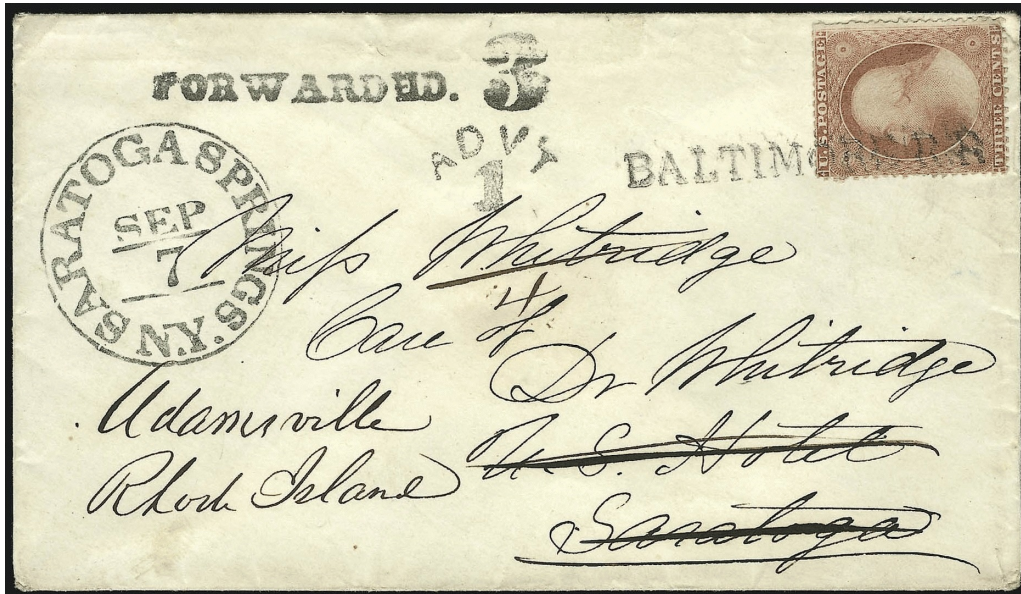 FORWARDED. 3
ADVT
1
BALTIMORE R.R.
U.S. POSTAGE
THREE CENTS
SARATOGA SPRINGS. N.Y.
SEP
7
Miss Whitridge
4
Care of
Dr Whitridge
U. S. Hotel
Saratoga
Adamsville
Rhode Island